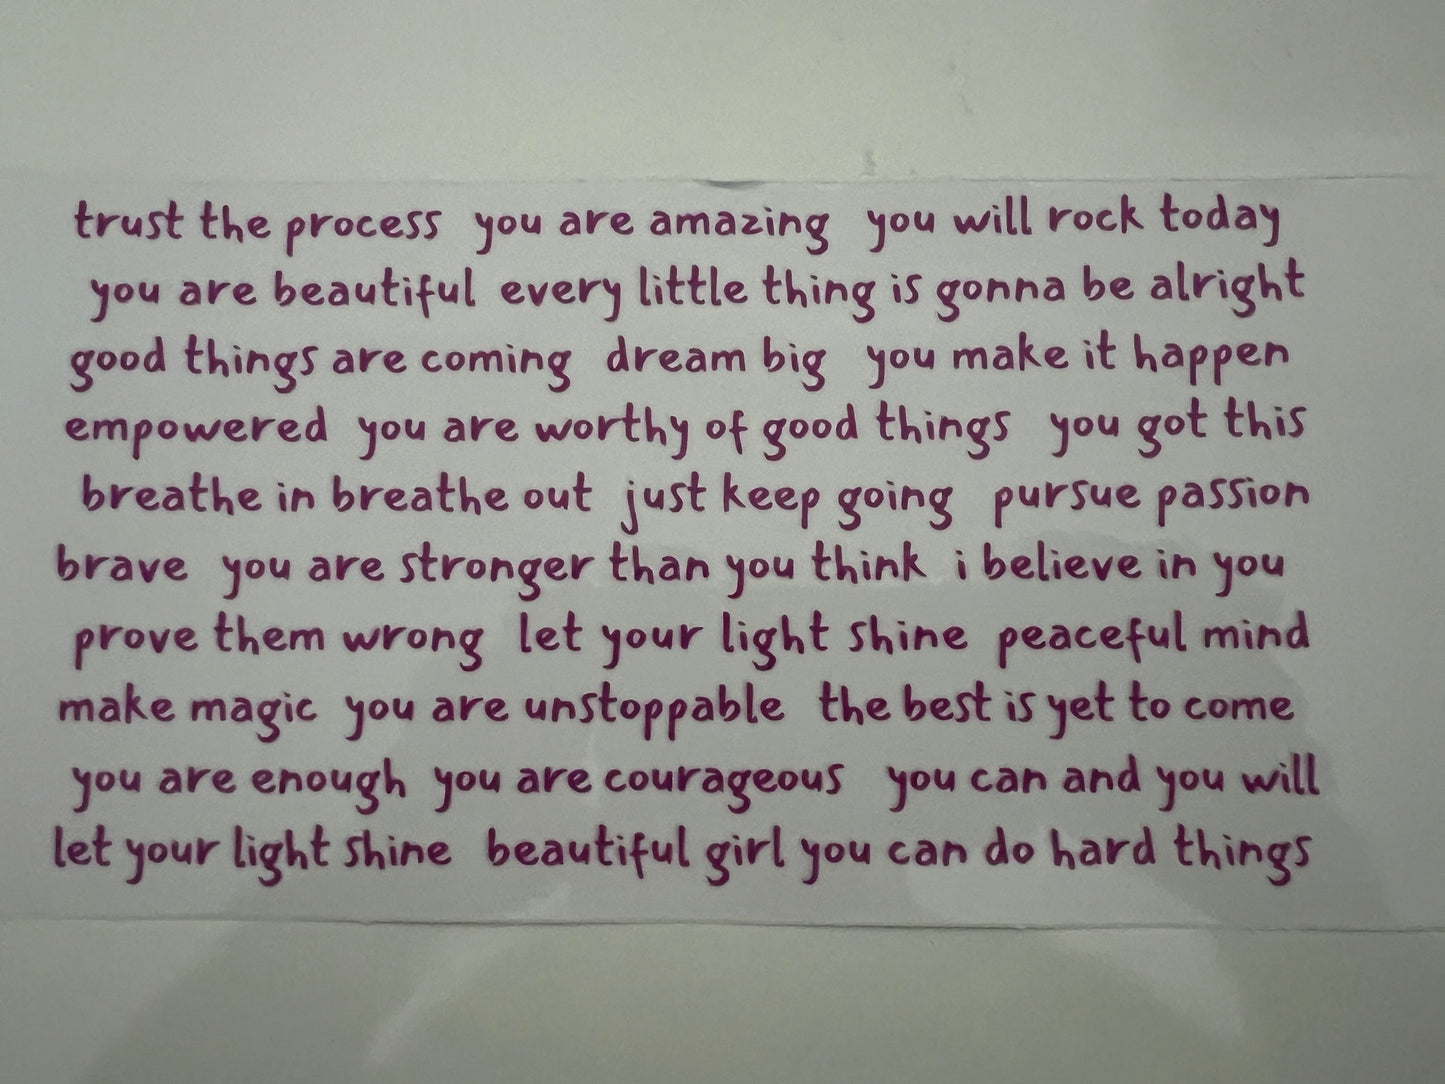 trust the process you are amazing you will rock today
you are beautiful every little thing is gonna be alright
good things are coming dream big you make it happen
empowered you are worthy of good things you got this
breathe in breathe out just keep going pursue passion
brave you are stronger than you think i believe in you
prove them wrong let your light shine peaceful mind
make magic you are unstoppable the best is yet to come
you are enough you are courageous you can and you will
let your light shine beautiful girl you can do hard things